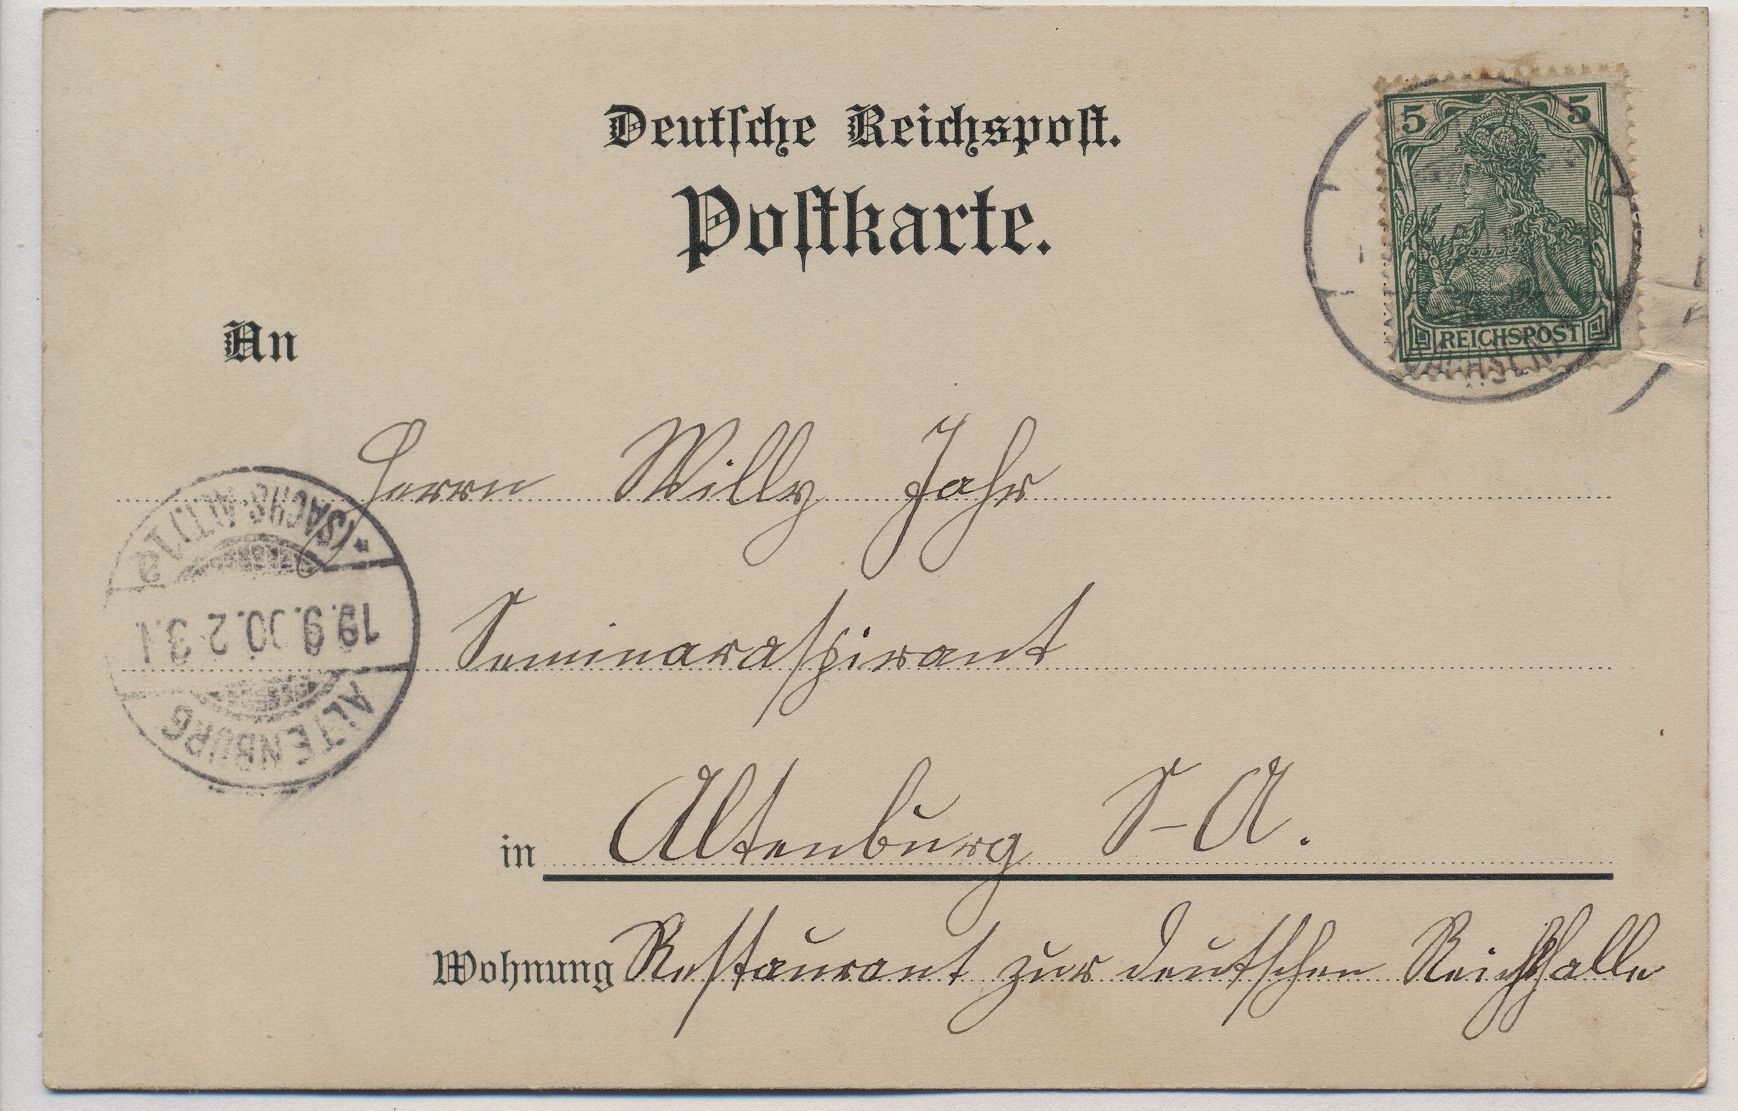 Deutsche Reichspost.
Postkarte.
5 5
REICHSPOST
An
Herrn Willy Jahr
Seminaraspirant
in Altenburg S-A.
Wohnung Restaurant zur deutschen Reichshalle
ALTENBURG
19.9.00.2-3.
* (SACHS.-ALT.) 1a